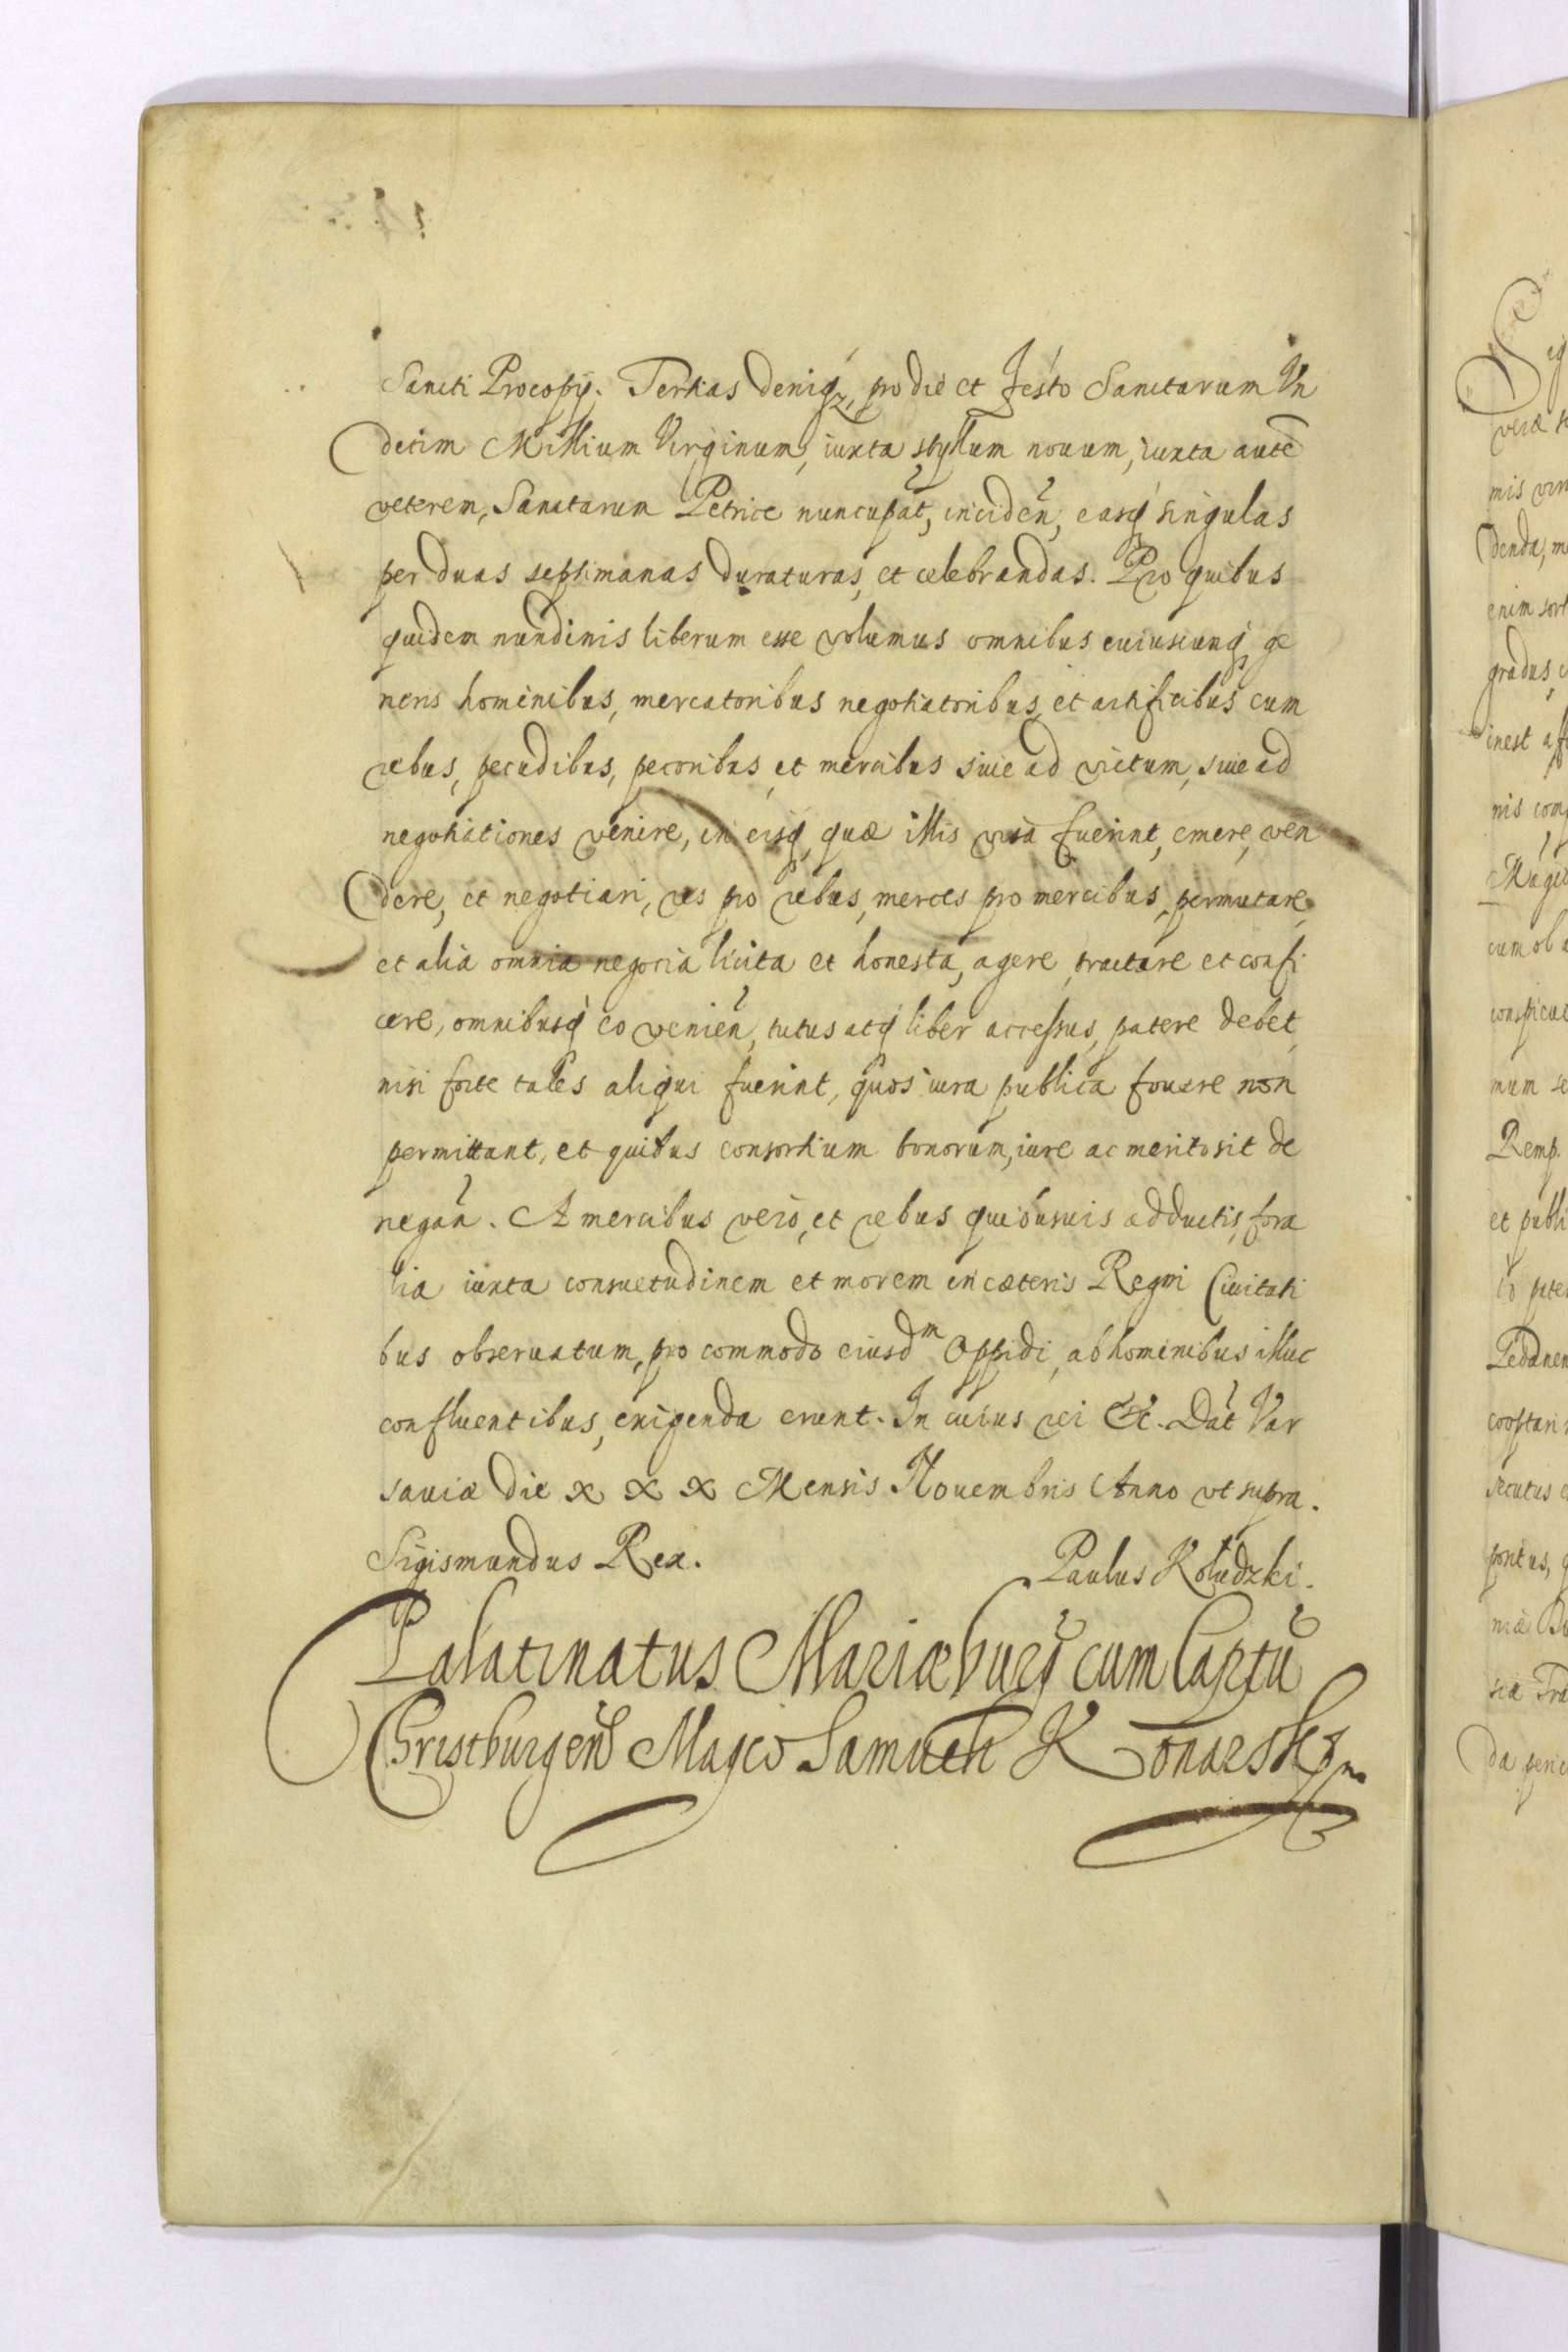 Sancti Procopij. Tertias deniqz, pro die et Festo Sanctarum Vn
decim Millium Virginum, iuxta stylum nouum, iuxta autē
veterem, Sanctarum Petrice nuncupat, inciden, easq singulas
per duas septimanas duraturas, et celebrandas. Pro quibus
quidem nundinis liberum esse volumus omnibus cuiuscunq ge
neris hominibus, mercatoribus negotiatoribus, et artificibus cum
rebus, pecudibus, pecoribus, et mercibus siue ad victum, siue ad
negotiationes venire, in eisq, quæ illis visa fuerint, emere, ven
dere, et negotiari, res pro rebus, merces pro mercibus, permutare,
et alia omnia negocia licita et honesta, agere, tractare et confi
cere, omnibusq eo venien, tutus atq liber accessus, patere debet,
nisi forte tales aliqui fuerint, quos iura publica fouere non
permittant, et quibus consortium bonorum, iure ac merito sit de
negan. A mercibus vero, et rebus quibusuis adductis, fora
lia iuxta consuetudinem et morem in cæteris Regni Ciuitati
bus obseruatum, pro commodo eiusdm Oppidi, ab hominibus illuc
confluentibus, exigenda erunt. In cuius rei &c. Dat Var
sauiæ die x x x Mensis Nouembris Anno vt supra.
Sigismundus Rex. Paulus Koludzki.
Palatinatus Mariæburg cum Captu
Christburgen Magco Samueli Konarski